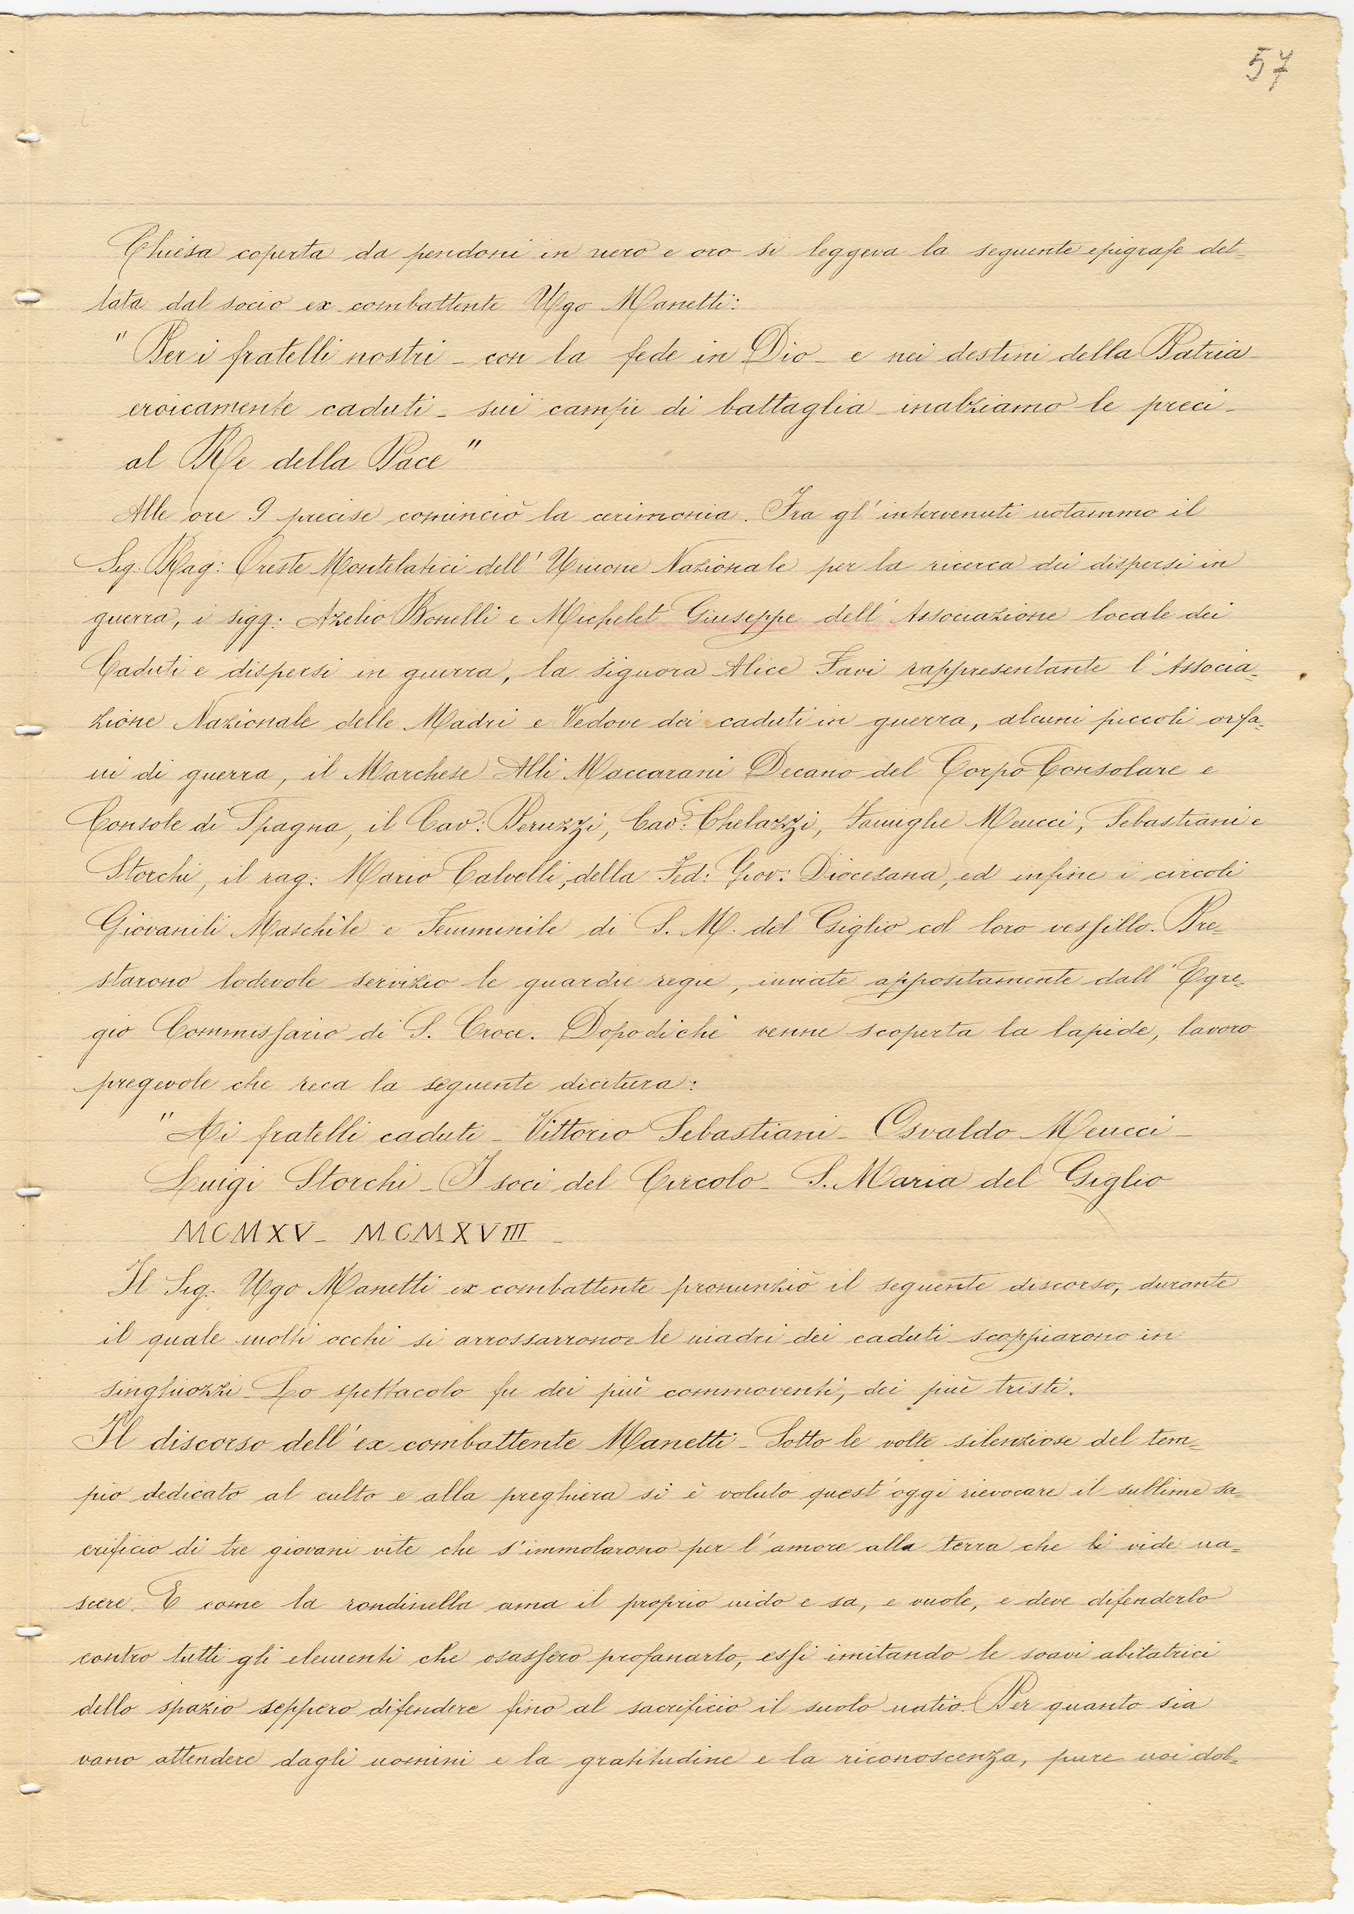 57
Chiesa coperta da pendoni in nero e oro si leggeva la seguente epigrafe det=
tata dal socio ex combattente Ugo Manetti:
"Per i fratelli nostri - con la fede in Dio - e nei destini della Patria -
eroicamente caduti - sui campi di battaglia - inalziamo le preci -
al Re della Pace"
Alle ore 9 precise cominciò la cerimonia. Fra gl'intervenuti notammo il
Sig. Rag: Oreste Montelatici dell'Unione Nazionale per la ricerca dei dispersi in
guerra, i sigg: Azelio Bonelli e Michelet Giuseppe dell'Associazione locale dei
Caduti e dispersi in guerra, la signora Alice Favi rappresentante l'Associa=
zione Nazionale delle Madri e Vedove dei caduti in guerra, alcuni piccoli orfa=
ni di guerra, il Marchese Alli Maccarani Decano del Corpo Consolare e
Console di Spagna, il Cav: Peruzzi, Cav: Chelazzi, Famiglie Meucci, Sebastiani e
Storchi, il rag: Mario Calvelli, della Fed: Giov: Diocesana, ed infine i circoli
Giovanili Maschile e Femminile di S. M. del Giglio col loro vessillo. Pre=
starono lodevole servizio le guardie regie, inviate appositamente dall'Egre=
gio Commissario di S. Croce. Dopodichè venne scoperta la lapide, lavoro
pregevole che reca la seguente dicitura:
"Ai fratelli caduti - Vittorio Sebastiani - Osvaldo Meucci -
Luigi Storchi - I soci del Circolo - S. Maria del Giglio
MCMXV - MCMXVIII -
Il Sig. Ugo Manetti ex combattente pronunziò il seguente discorso, durante
il quale molti occhi si arrossarrono e le madri dei caduti scoppiarono in
singhiozzi - Lo spettacolo fu dei più commoventi, dei più tristi.
Il discorso dell'ex combattente Manetti - Sotto le volte silenziose del tem=
pio dedicato al culto e alla preghiera si è voluto quest'oggi rievocare il sublime sa=
crificio di tre giovani vite che s'immolarono per l'amore alla terra che li vide na=
scere. E come la rondinella ama il proprio nido e sa, e vuole, e deve difenderlo
contro tutti gli elementi che osassero profanarlo, essi imitando le soavi abitatrici
dello spazio seppero difendere fino al sacrificio il suolo natio. Per quanto sia
vano attendere dagli uomini e la gratitudine e la riconoscenza, pure noi dob=